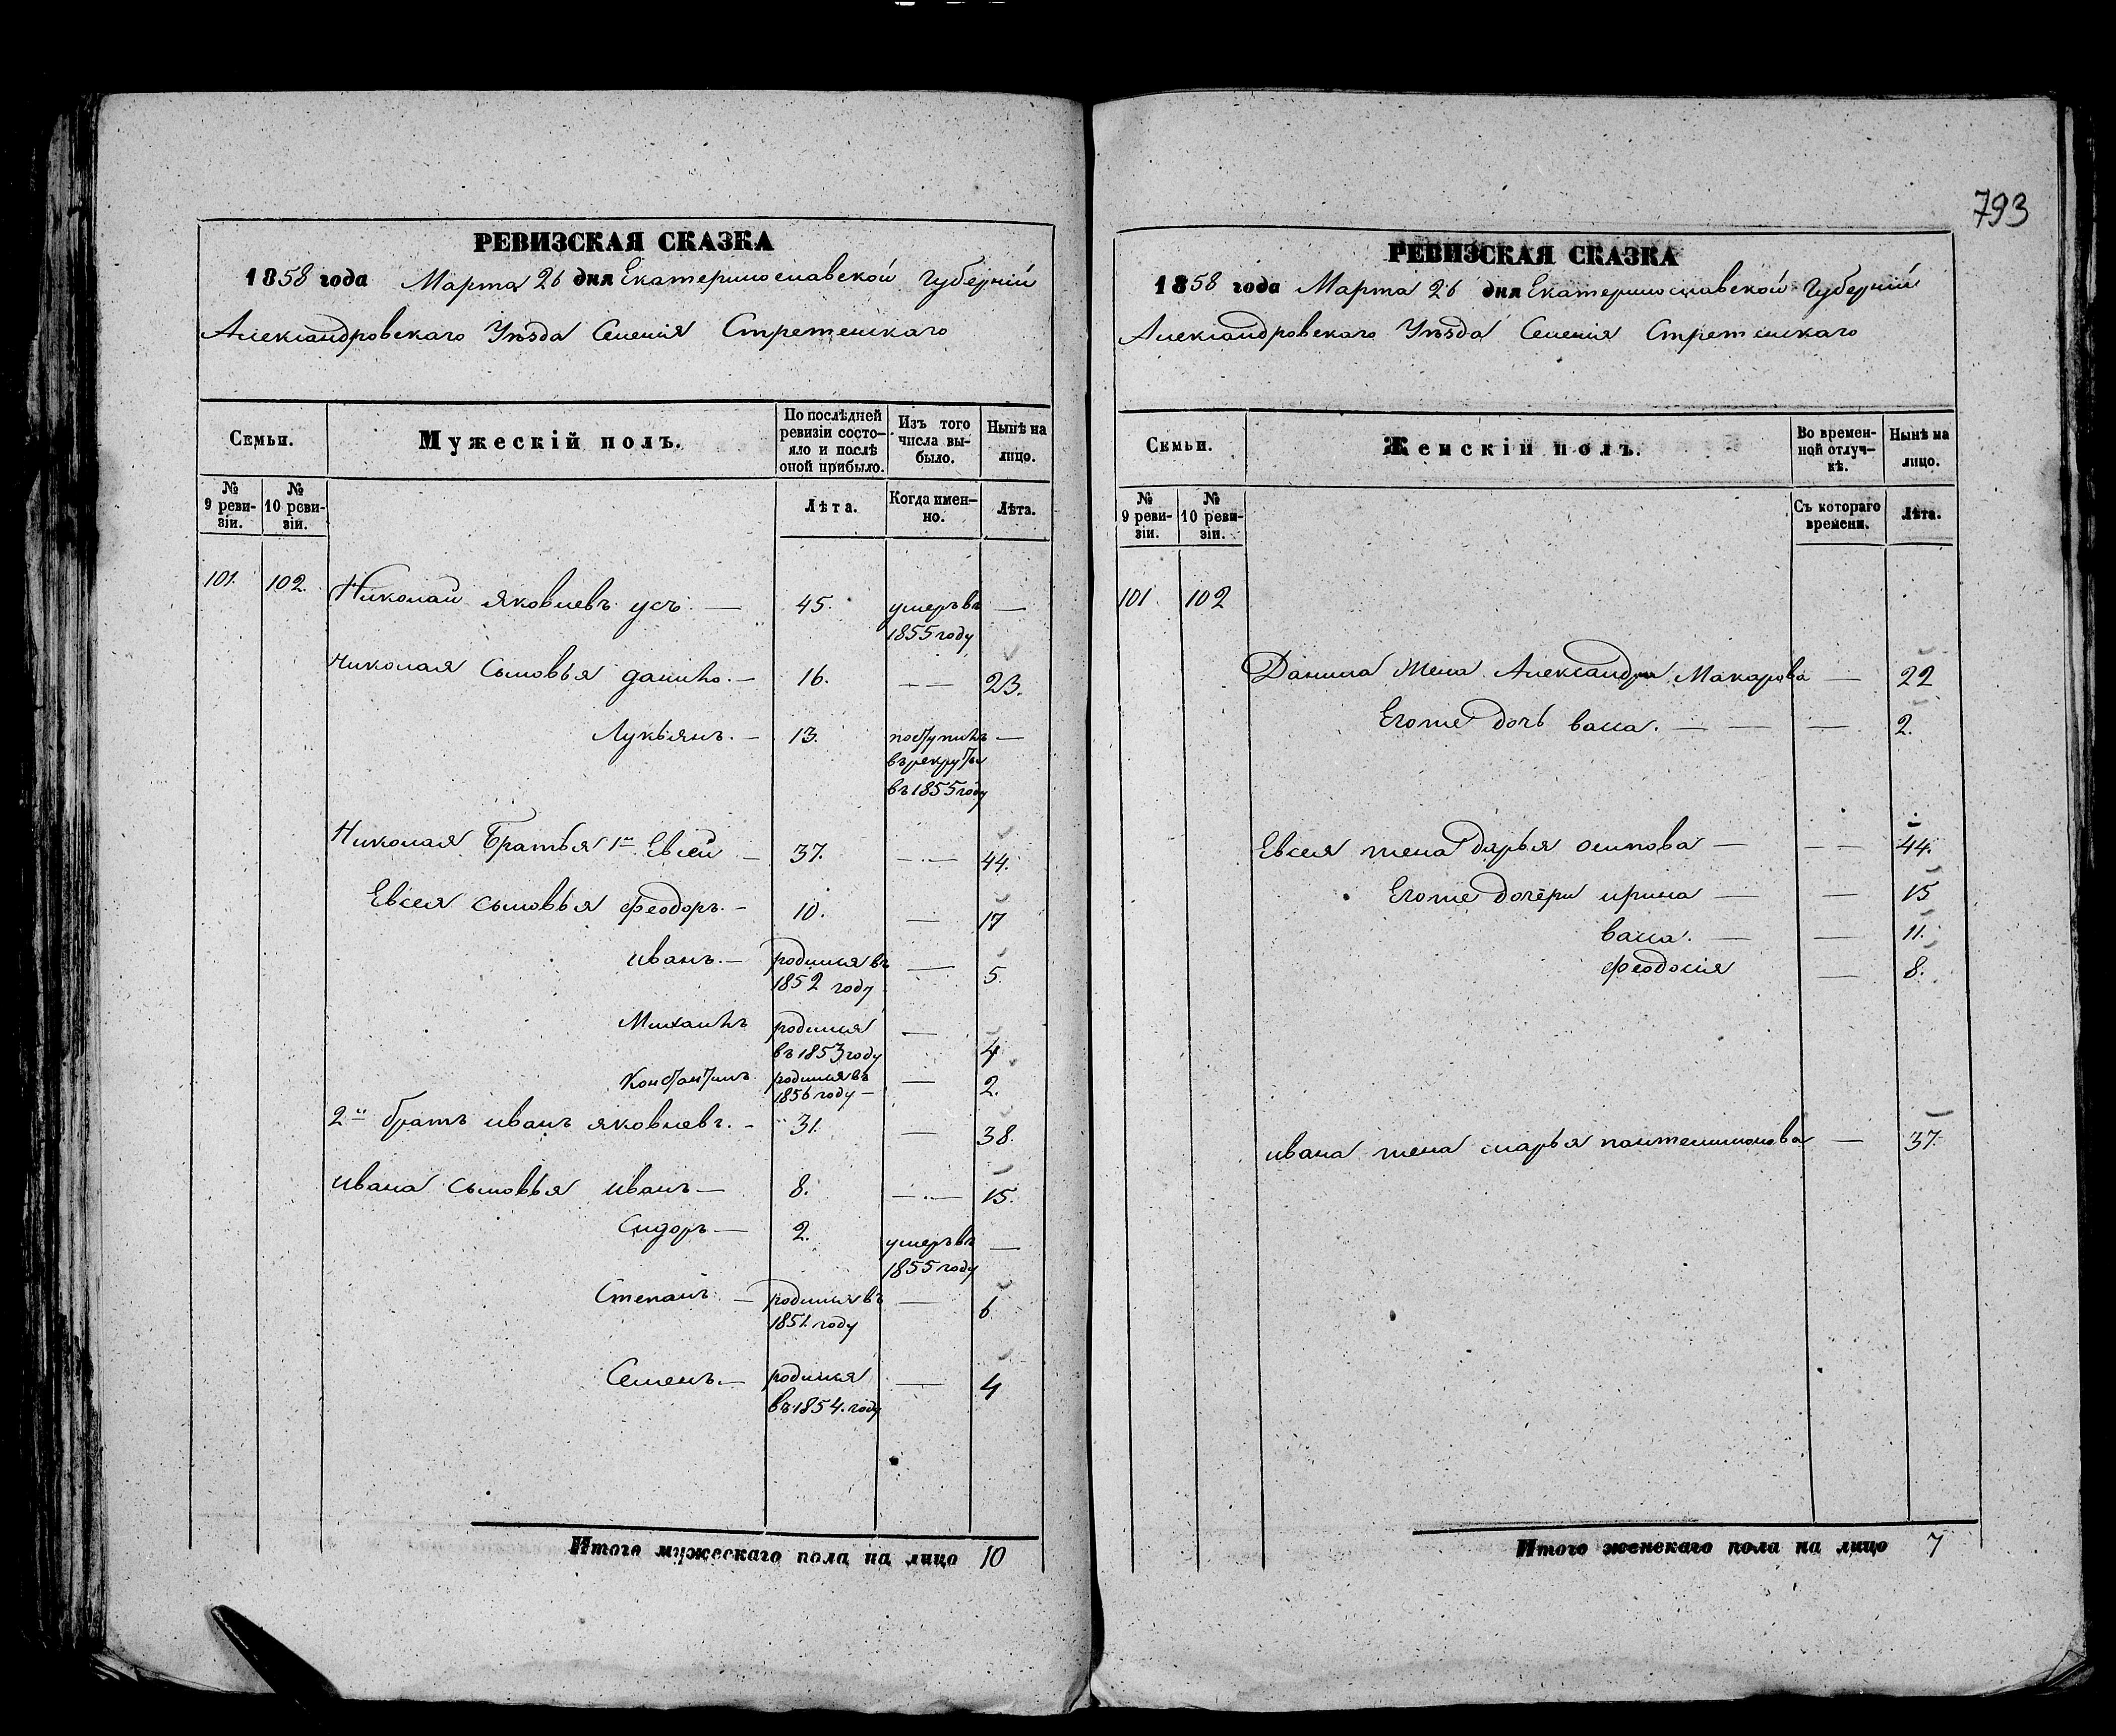 РЕВИЗСКАЯ СКАЗКА
1858 года Марта 26 дня Екатеринославской Губерніи
Александровскаго Уѣзда Селенія Стретенскаго
Семьи.
Мужескій полъ.
По послѣдней
ревизіи состо-
яло и послѣ
оной прибыло.
Изъ того
числа вы-
было.
Нынѣ на
лицо.
№
9 реви-
зіи.
№
10 реви-
зіи.
Лѣта.
Когда имен-
но.
Лѣта.
101. 102. Николай яковлевъ усъ. — 45. умеръ въ —
1855 году
Николая сыновья данило. — 16. — — 23.
Лукьянъ. — 13. поступилъ —
въ рекруты
въ 1855 году
Николая Братья 1й Евсей — 37. — . — 44.
Евсея сыновья феодоръ. — 10. — 17
иванъ. — родился въ — 5.
1852 году
Михаилъ родился — 4
въ 1853 году
Константинъ родился въ — 2.
1856 году —
2й братъ иванъ яковлевъ. — 31. — 38.
ивана сыновья иванъ — 8. — . — 15.
Сидоръ — 2. умеръ въ —
1855 году
Степанъ — родился въ — 6
1851. году
Семенъ. — родился — 4
въ 1854. году
Итого мужескаго пола на лицо 10
793
РЕВИЗСКАЯ СКАЗКА
1858 года Марта 26 дня Екатеринославской Губерніи
Александровскаго Уѣзда Селенія Стретенскаго
Семьи.
Женскій полъ.
Во времен-
ной отлуч-
кѣ.
Нынѣ на
лицо.
№
9 реви-
зіи.
№
10 реви-
зіи.
Съ котораго
времени.
Лѣта.
101. 102
Данила Жена Александра Макарова — 22
Егоже дочь васса. — — — 2.
Евсея жена дарья осипова — — — 44.
Егоже дочери ирина — — 15
васса. — — 11.
феодосия — 8.
ивана жена марья пантелимонова — 37.
Итого женскаго пола на лицо 7